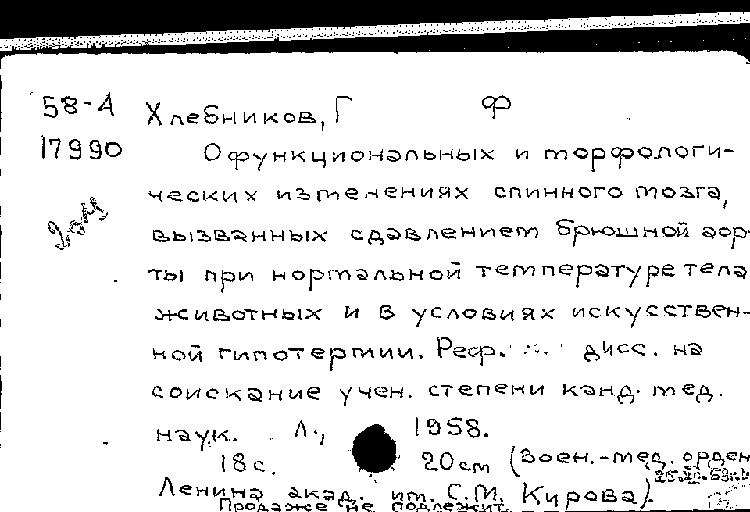 58-А Хлебников, Г Ф
17990 О функциональных и морфологи-
ческих изменениях спинного мозга,
вызванных сдавлением брюшной аор-
ты при нормальной температуре тела
животных и в условиях искусствен-
ной гипотермии. Реф. дисс. на
соискание учен. степени канд. мед.
наук. Л., 1958.
18 с. 20 см (Воен.-мед. орден
Ленина акад. им. С.М. Кирова).
Продаже не подлежит.